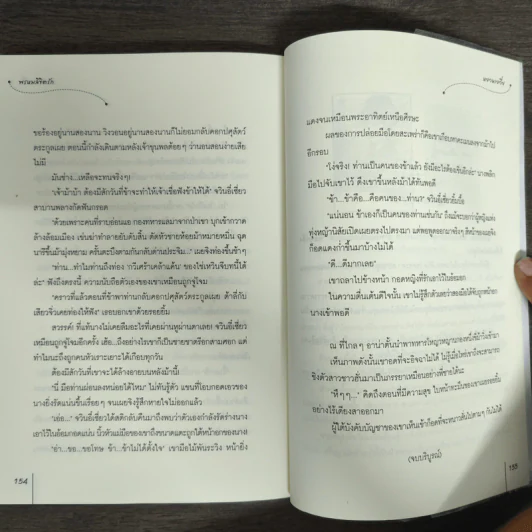 พรหมลิขิตรัก
ขอร้องอยู่นานสองนาน วิงวอนอยู่นานสองนานก็ไม่ยอมกลับคอกปศุสัตว์
ตระกูลเผย ตอนนี้กำลังเดินตามหลังเจ้าขุนพลต้อยๆ ว่านอนสอนง่ายเสีย
ไม่มี
มันช่าง...เหลือจะทนจริงๆ!
"เจ้าม้าบ้า ต้องมีสักวันที่ข้าจะทำให้เจ้าเชื่อฟังข้าให้ได้" จวินอี่เซี่ยว
สาบานพลางกัดฟันกรอด
"ด้วยเพราะคนที่ราบอ่อนแอ กองทหารแลมาจากป่าเขา บุกเข้ากวาด
ล้างล้อมเมือง เข่นฆ่าทำลายยับคับสิ้น ตัดหัวชายห้อยม้าหมายหมื่น ฉุด
นารีขึ้นม้ามุ่งพยาม ครั้นตะบึงตามกันกลับด่านประจิม..." เผยซิงท่องขึ้นช้าๆ
"ท่าน...ทำไมท่านถึงท่อง กวีเศร้าเคล้าแค้น' ของไช่เหวินจีบทนี้ได้
ล่ะ" ฟังถึงตรงนี้ ความนับถือตัวเองของเขาเหมือนถูกขู่โจม
"คราวที่แล้วตอนที่ข้าพาท่านกลับคอกปศุสัตว์ตระกูลเผย ต้าลี่กับ
เสี่ยวจิ่วเคยท่องให้ฟัง" เธอบอกเขาด้วยรอยยิ้ม
สวรรค์! ที่แท้นางไม่เคยลืมอะไรที่เคยผ่านหูผ่านตาเลย! จวินอี่เซี่ยว
เหมือนถูกขู่โจมอีกครั้ง เฮ้อ...ถึงอย่างไรเขาก็เป็นชายชาตรีอกสามศอก แต่
ทำไมนะถึงถูกคนหัวเราะเยาะได้เกือบทุกวัน
ต้องมีสักวันที่เขาจะได้ล้างอายบนหลังม้านี้!
"นี่ มือท่านผ่อนลงหน่อยได้ไหม" ไม่ทันรู้ตัว แขนที่โอบกอดเอวของ
นางยิ่งรัดแน่นขึ้นเรื่อยๆ จนเผยซิงรู้สึกหายใจไม่ออกแล้ว
"เอ่อ..." จวินอี่เซี่ยวได้สติกลับคืนมาถึงพบว่าตัวเองกำลังรัดร่างนาง
เอาไว้ในอ้อมกอดแน่น นิ้วหัวแม่มือของเขาถึงขนาดแตะถูกใต้หน้าอกของนาง!
"ย่า...ขอ...ขอโทษ ข้า...ข้าไม่ได้ตั้งใจ" เขามือไม้พันระวิง หน้ายิ่ง
154
แดงจนเหมือนพระอาทิตย์เหนือศีรษะ
ผลของการปล่อยมือโดยสะเพร่าก็คือเขาเกือบตกตะแลงลงจากม้าไป
อีกรอบ
"โง่จริง! ท่านเป็นคนของข้าแล้ว ยังมีอะไรต้องเขินอีกล่ะ" นางพลิก
มือไปจับเขาไว้ ดึงเขาขึ้นหลังม้าได้ทันพอดี
"ข้า...ข้าคือ...คือคนของท่าน..." จวินอี่เซี่ยวยิ้มกึ่ง
"แน่นอน ข้าเองก็เป็นคนของท่านเช่นกัน" ถึงแม้จะบอกว่าผู้หญิงแห่ง
ทุ่งหญ้านิสัยเปิดเผยตรงไปตรงมา แต่พอพูดออกมาจริงๆ สีหน้าของเผยซิง
ก็อดแดงก่ำขึ้นมาบ้างไม่ได้
"ดี...ดีมากเลย"
เขาถลาไปข้างหน้า กอดหญิงที่รักเอาไว้ในอ้อมอก
ในความตื่นเต้นดีใจนั้น เขาไม่รู้สึกตัวเลยว่าสองมือได้จับถูกหน้าอก
นางเข้าพอดี
ณ ที่ไกลๆ
"หึๆๆ..."
อย่างไร้เดียงสาออกมา
(จบบริบูรณ์)
155